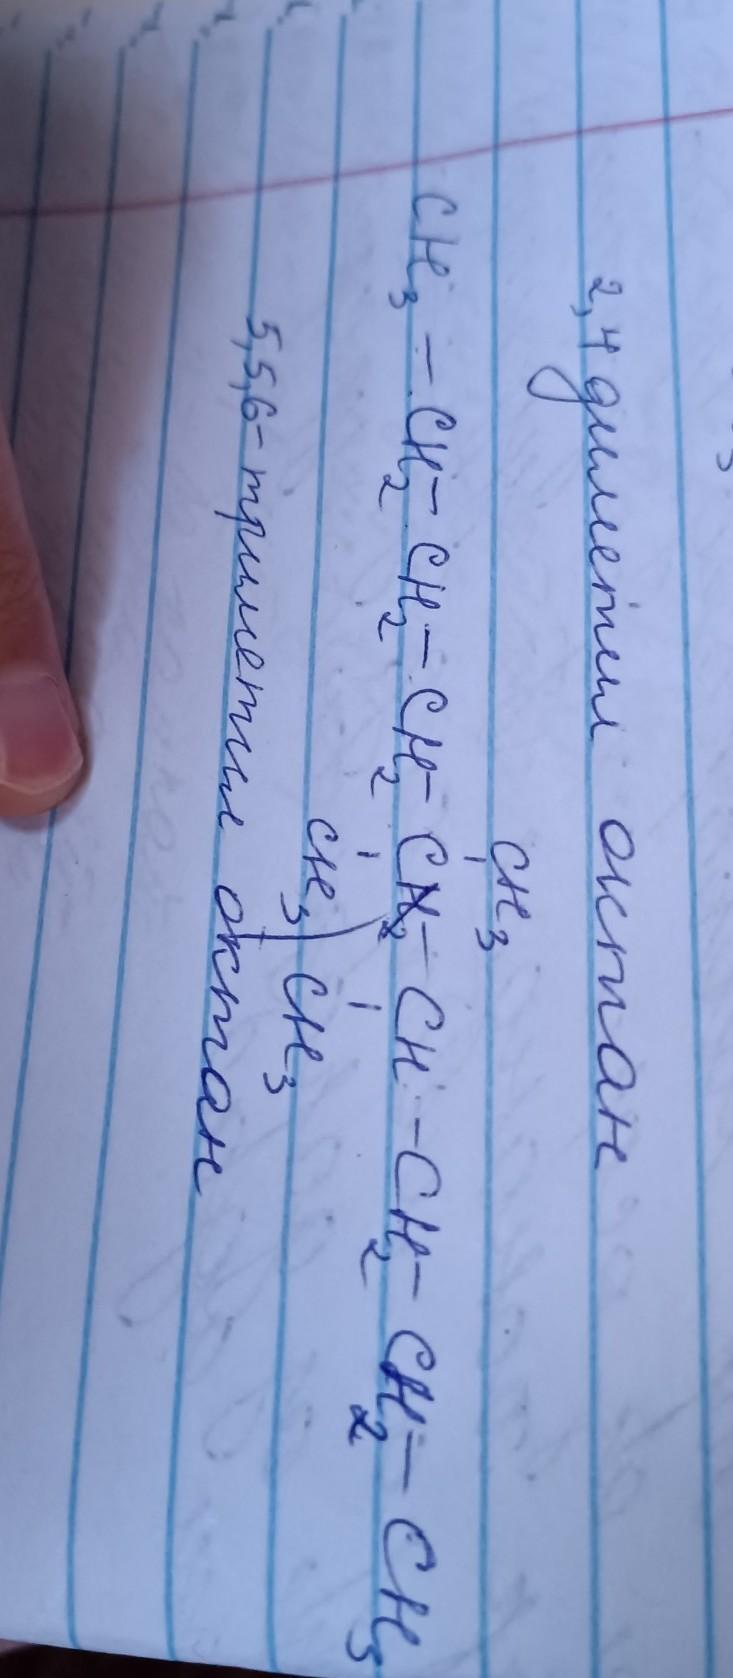 2,4 диметил октан
CH3
CH3 – CH2 – CH2 – CH2 CH2 – CH – CH2 – CH2 – CH3
CH3) CH3
5,5,6-триметил октан